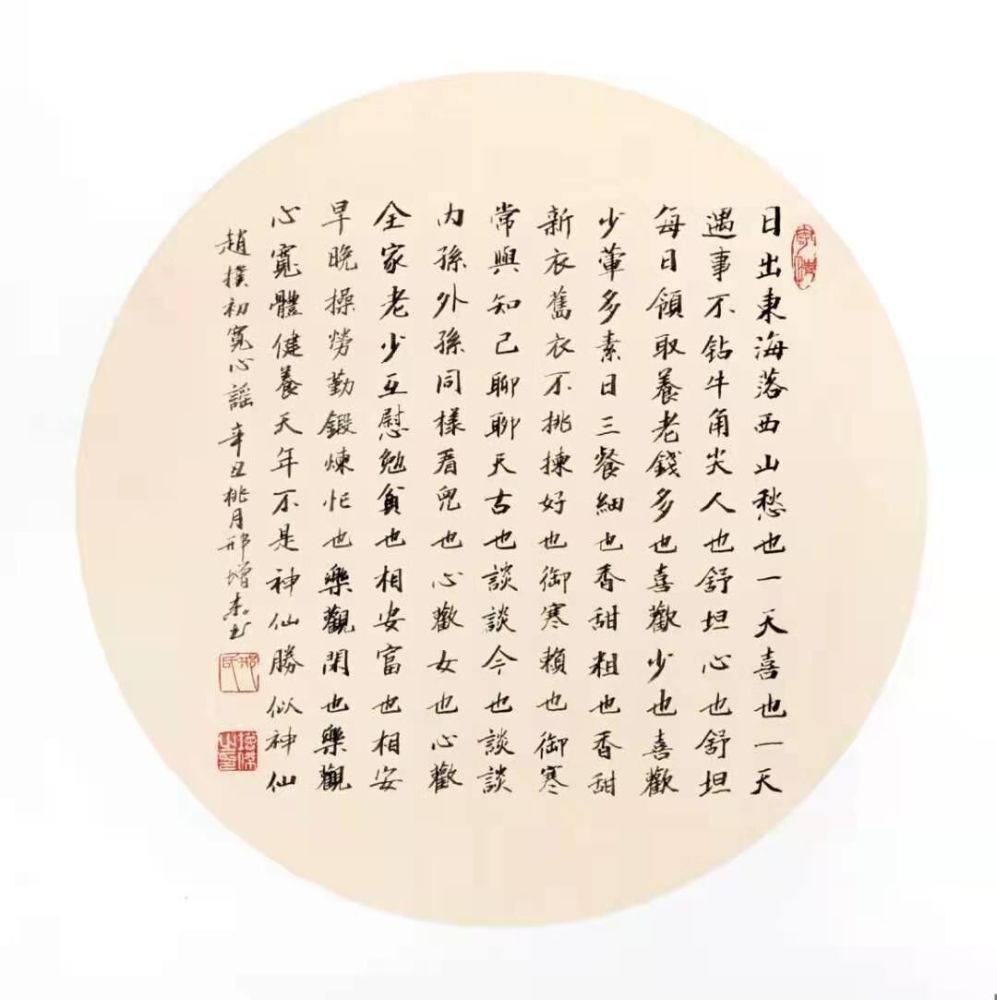 日出東海落西山愁也一天喜也一天
遇事不钻牛角尖人也舒坦心也舒坦
每日領取養老錢多也喜歡少也喜歡
少葷多素日三餐細也香甜粗也香甜
新衣舊衣不挑揀好也御寒賴也御寒
常與知己聊聊天古也談談今也談談
内孫外孫同樣看兒也心歡女也心歡
全家老少互慰勉貧也相安富也相安
早晚操勞勤鍛煉忙也樂觀閑也樂觀
心寬體健養天年不是神仙勝似神仙
趙撲初寬心謠辛丑桃月邢增杰书